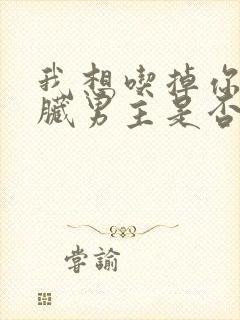 我想喫掉你
臟男主是否
嘗諭